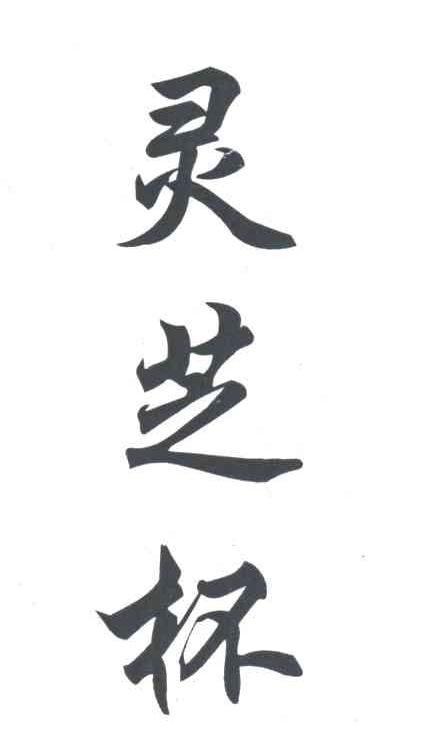 灵芝杯